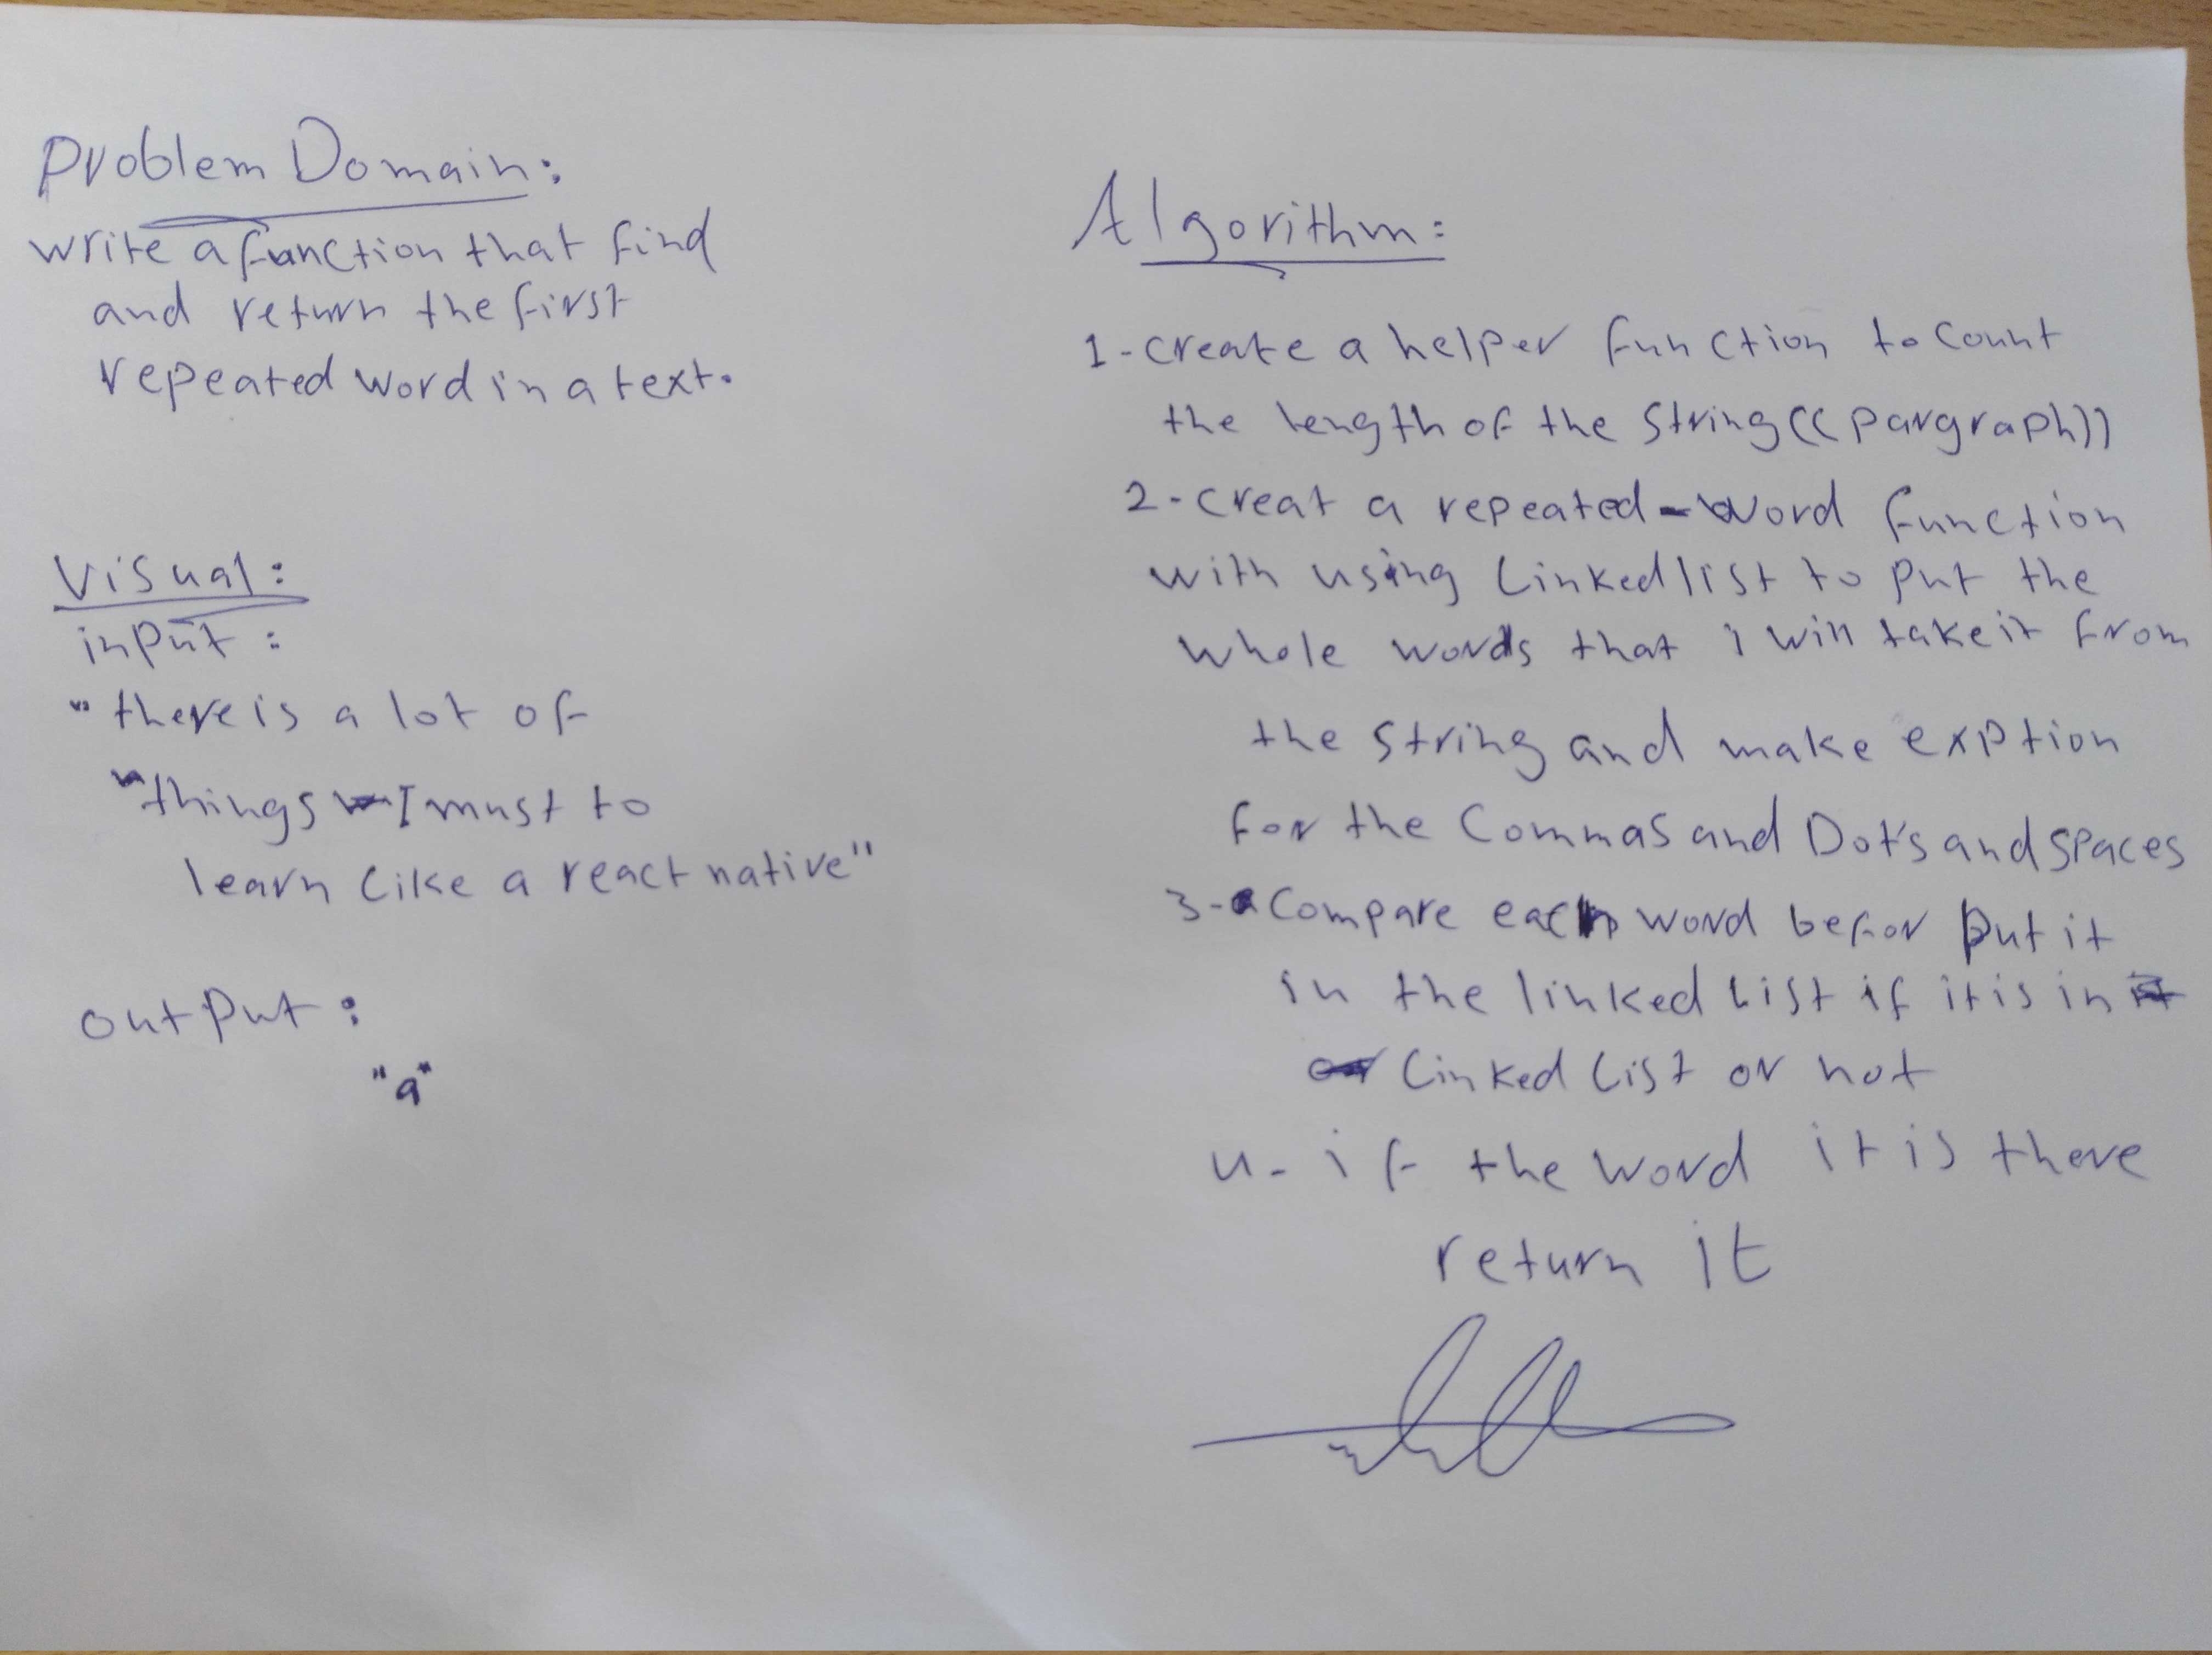 Problem Domain:
write a function that find
and return the first
repeated word in a text.
Visual:
input:
"there is a lot of
"things I must to
learn like a react native"
output:
"a"
Algorithm:
1-create a helper function to count
the length of the string((pargraph))
2-creat a repeated-word function
with using Linkedlist to put the
whole words that i will take it from
the string and make exption
for the Commas and Dot's and spaces
3-Compare each word befor put it
in the linked list if it is in
Linked list or not
4- if the word it is there
return it